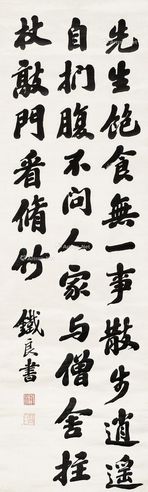 先生飽食無一事散步逍遙
自捫腹不問人家与僧舍拄
杖敲門看脩竹
鐵良書